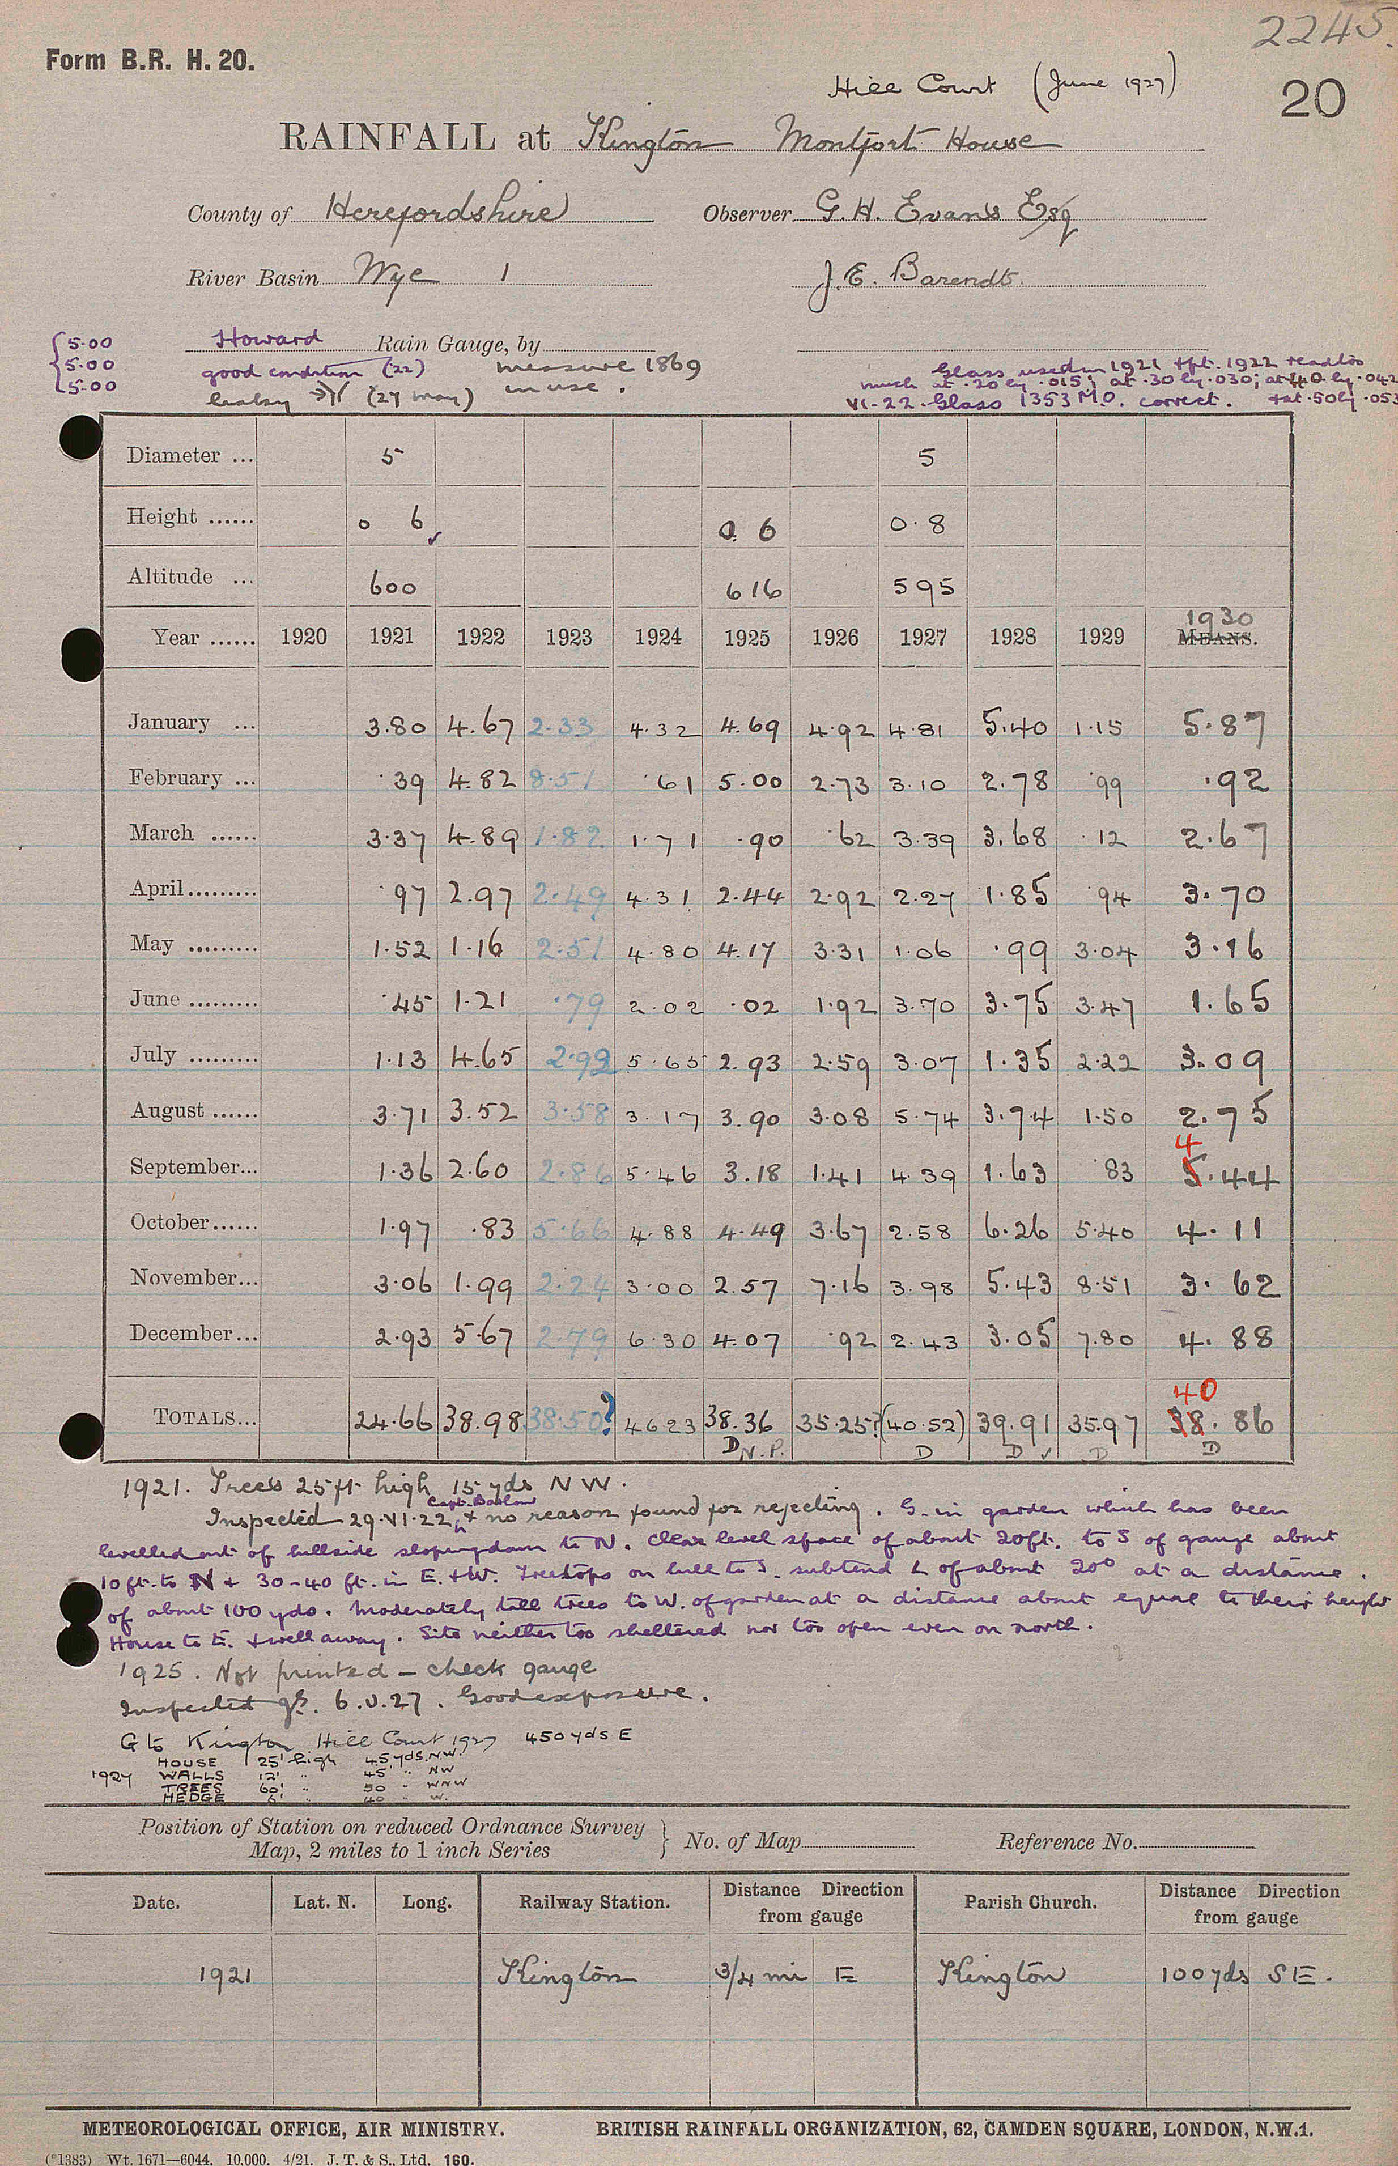 2245.
Form B.R. H. 20.
Hill Court (June 1927)
20
RAINFALL at Kington Montfort House
County of Herefordshire Observer G. H. Evans Esq
River Basin Wye 1 J. E. Barendt.
{5.00 Howard Rain Gauge, by
{5.00 good condition (22) measure 1869
{5.00 leaky (27 May) in use.
Glass used in 1921 & pt. 1922 read too
much at .20 by .015; at .30 by .030; at 40 by .042
VI-22. Glass 1353 M.O. correct. & at .50 by .053
Diameter ... 5 5
Height ...... 0 6 0 6 0.8
Altitude ... 600 616 595
1930
Year ...... 1920 1921 1922 1923 1924 1925 1926 1927 1928 1929 MEANS.
January ... 3.80 4.67 2.33 4.32 4.69 4.92 4.81 5.40 1.15 5.87
February ... .39 4.82 8.51 .61 5.00 2.73 3.10 2.78 .99 .92
March ...... 3.37 4.89 1.82 1.71 .90 .62 3.39 3.68 .12 2.67
April ......... .97 2.97 2.49 4.31 2.44 2.92 2.27 1.85 .94 3.70
May ......... 1.52 1.16 2.51 4.80 4.17 3.31 1.06 .99 3.04 3.16
June ......... .45 1.21 .79 2.02 .02 1.92 3.70 3.75 3.47 1.65
July ......... 1.13 4.65 2.92 5.65 2.93 2.59 3.07 1.35 2.22 3.09
August ...... 3.71 3.52 3.58 3.17 3.90 3.08 5.74 3.74 1.50 2.75
4
September... 1.36 2.60 2.86 5.46 3.18 1.41 4.39 1.63 .83 5.44
October...... 1.97 .83 5.66 4.88 4.49 3.67 2.58 6.26 5.40 4.11
November... 3.06 1.99 2.24 3.00 2.57 7.16 3.98 5.43 8.51 3.62
December... 2.93 5.67 2.79 6.30 4.07 .92 2.43 3.05 7.80 4.88
40
TOTALS... 24.66 38.98 38.50? 46.23 38.36 35.25? (40.52) 39.91 35.97 38.86
D N.P. D D ✓ D D
1921. Trees 25 ft high 15 yds N W.
Inspected 29.VI.22, Capt. Barlow & no reason found for rejecting. G. in garden which has been
levelled out of hillside sloping down to N. Clear level space of about 20ft. to S of gauge about
10 ft. to N + 30-40 ft. in E. & W. Treetops on hill to S. subtend L of about 20° at a distance
of about 100 yds. Moderately tall trees to W. of garden at a distance about equal to their height
House to E. & well away. Site neither too sheltered nor too open even on north.
1925. Not printed - check gauge
Inspected 6.V.27. Good exposure.
G to Kington Hill Court 1927 450 yds E
HOUSE 25' high 45 yds. NW.
1927 WALLS 12' " 45 " NW
TREES 60' " 50 " WNW
HEDGE 6' " 40 " W.
Position of Station on reduced Ordnance Survey
Map, 2 miles to 1 inch Series } No. of Map Reference No.
Date. Lat. N. Long. Railway Station. Distance Direction from gauge Parish Church. Distance Direction from gauge
1921 Kington 3/4 mi E Kington 100 yds S E.
METEOROLOGICAL OFFICE, AIR MINISTRY. BRITISH RAINFALL ORGANIZATION, 62, CAMDEN SQUARE, LONDON, N.W.1.
(*1383) Wt. 1671—6044. 10,000. 4/21. J. T. & S., Ltd. 160.